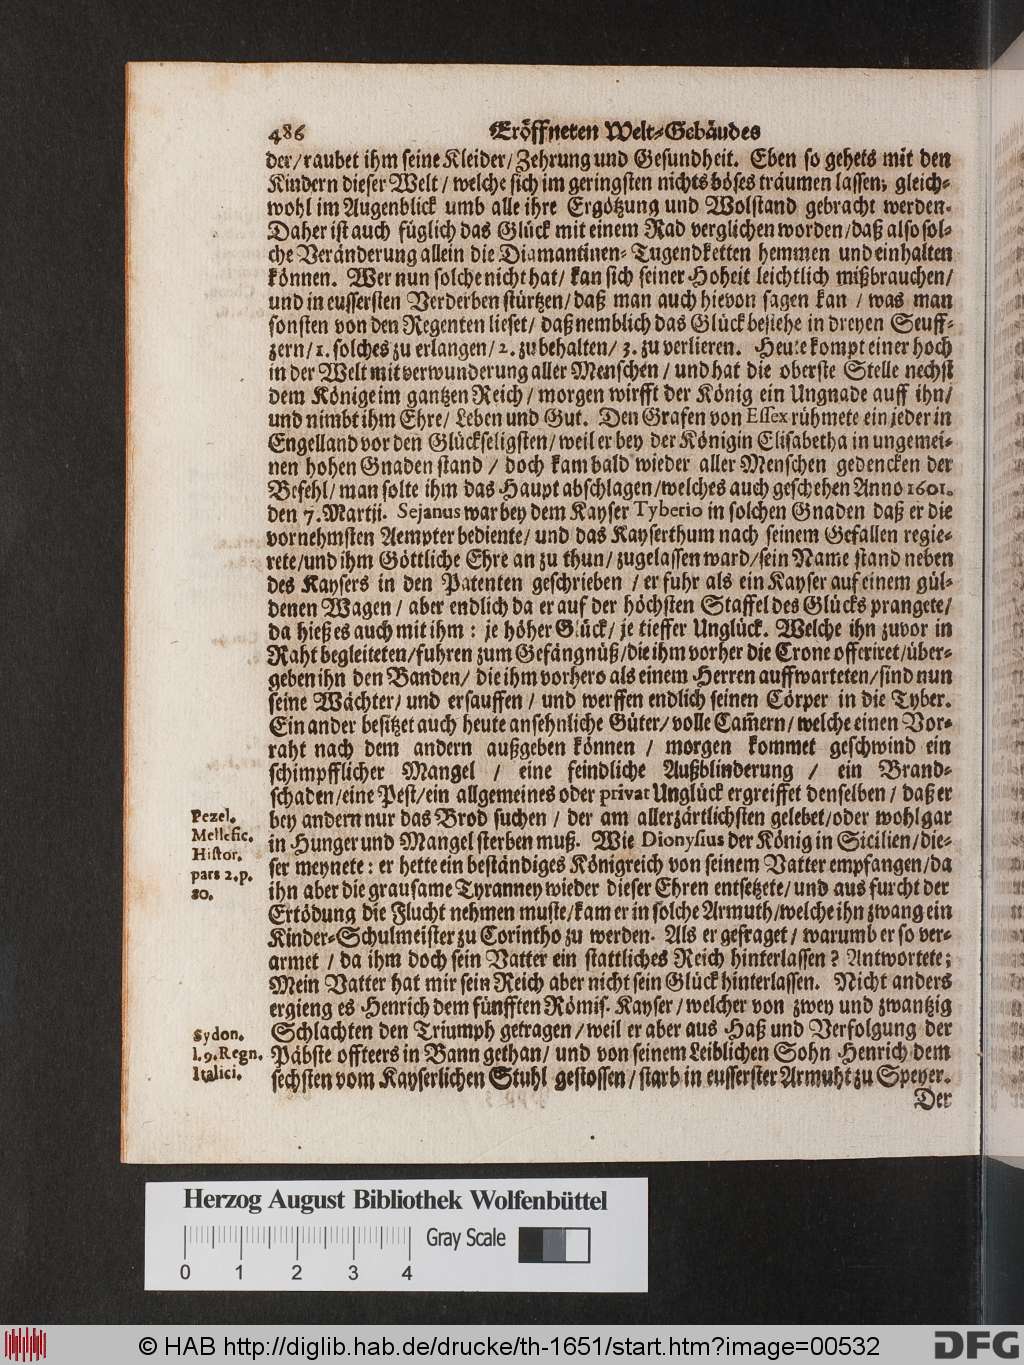 486 Eröffneten Welt-Gebäudes
der/ raubet ihm seine Kleider/ Zehrung und Gesundheit. Eben so gehets mit den
Kindern dieser Welt / welche sich im geringsten nichts böses träumen lassen; gleich-
wohl im Augenblick umb alle ihre Ergötzung und Wolstand gebracht werden.
Daher ist auch füglich das Glück mit einem Rad verglichen worden/ daß also sol-
che Veränderung allein die Diamantinen- Tugendketten hemmen und einhalten
können. Wer nun solche nicht hat/ kan sich seiner Hoheit leichtlich mißbrauchen/
und in eussersten Verderben stürtzen/ daß man auch hievon sagen kan / was man
sonsten von den Regenten lieset/ daß nemblich das Glück bestehe in dreyen Seuff-
zern/ 1. solches zu erlangen/ 2. zu behalten/ 3. zu verlieren. Heute kompt einer hoch
in der Welt mit verwunderung aller Menschen / und hat die oberste Stelle nechst
dem Könige im gantzen Reich / morgen wirfft der König ein Ungnade auff ihn/
und nimbt ihm Ehre/ Leben und Gut. Den Grafen von Essex rühmete ein jeder in
Engelland vor den Glückseligsten/ weil er bey der Königin Elisabetha in ungemei-
nen hohen Gnaden stand / doch kam bald wieder aller Menschen gedencken der
Befehl/ man solte ihm das Haupt abschlagen/ welches auch geschehen Anno 1601.
den 7. Martji. Sejanus war bey dem Kayser Tyberio in solchen Gnaden daß er die
vornehmsten Aempter bediente/ und das Kayserthum nach seinem Gefallen regie-
rete/ und ihm Göttliche Ehre an zu thun/ zugelassen ward/ sein Name stand neben
des Kaysers in den Patenten geschrieben / er fuhr als ein Kayser auf einem gül-
denen Wagen / aber endlich da er auf der höchsten Staffel des Glücks prangete/
da hieß es auch mit ihm : je höher Glück/ je tieffer Unglück. Welche ihn zuvor in
Raht begleiteten/ fuhren zum Gefängnüß/ die ihm vorher die Crone offeriret/ über-
geben ihn den Banden/ die ihm vorhero als einem Herren auffwarteten/ sind nun
seine Wächter/ und ersauffen / und werffen endlich seinen Cörper in die Tyber.
Ein ander besitzet auch heute ansehnliche Güter/ volle Cam̃ern/ welche einen Vor-
raht nach dem andern außgeben können / morgen kommet geschwind ein
schimpfflicher Mangel / eine feindliche Außblinderung / ein Brand-
schaden/ eine Pest/ ein allgemeines oder privat Unglück ergreiffet denselben/ daß er
bey andern nur das Brod suchen / der am allerzärtlichsten gelebet/ oder wohl gar
in Hunger und Mangel sterben muß. Wie Dionysius der König in Sicilien/ die-
ser meynete : er hette ein beständiges Königreich von seinem Vatter empfangen/ da
ihn aber die grausame Tyranney wieder dieser Ehren entsetzete/ und aus furcht der
Ertödung die Flucht nehmen muste/ kam er in solche Armuth/ welche ihn zwang ein
Kinder-Schulmeister zu Corintho zu werden. Als er gefraget / warumb er so ver-
armet / da ihm doch sein Vatter ein stattliches Reich hinterlassen? Antwortete;
Mein Vatter hat mir sein Reich aber nicht sein Glück hinterlassen. Nicht anders
ergieng es Henrich dem fünfften Römis. Kayser / welcher von zwey und zwantzig
Schlachten den Triumph getragen / weil er aber aus Haß und Verfolgung der
Päbste offteers in Bann gethan/ und von seinem Leiblichen Sohn Henrich dem
sechsten vom Kayserlichen Stuhl gestossen / starb in eusserster Armuht zu Speyer.
Der
Pezel.
Mellefic.
Histor.
pars 2. p.
80.
Sydon.
l. 9. Regn.
Italici.
Herzog August Bibliothek Wolfenbüttel
Gray Scale
0 1 2 3 4
© HAB http://diglib.hab.de/drucke/th-1651/start.htm?image=00532
DFG